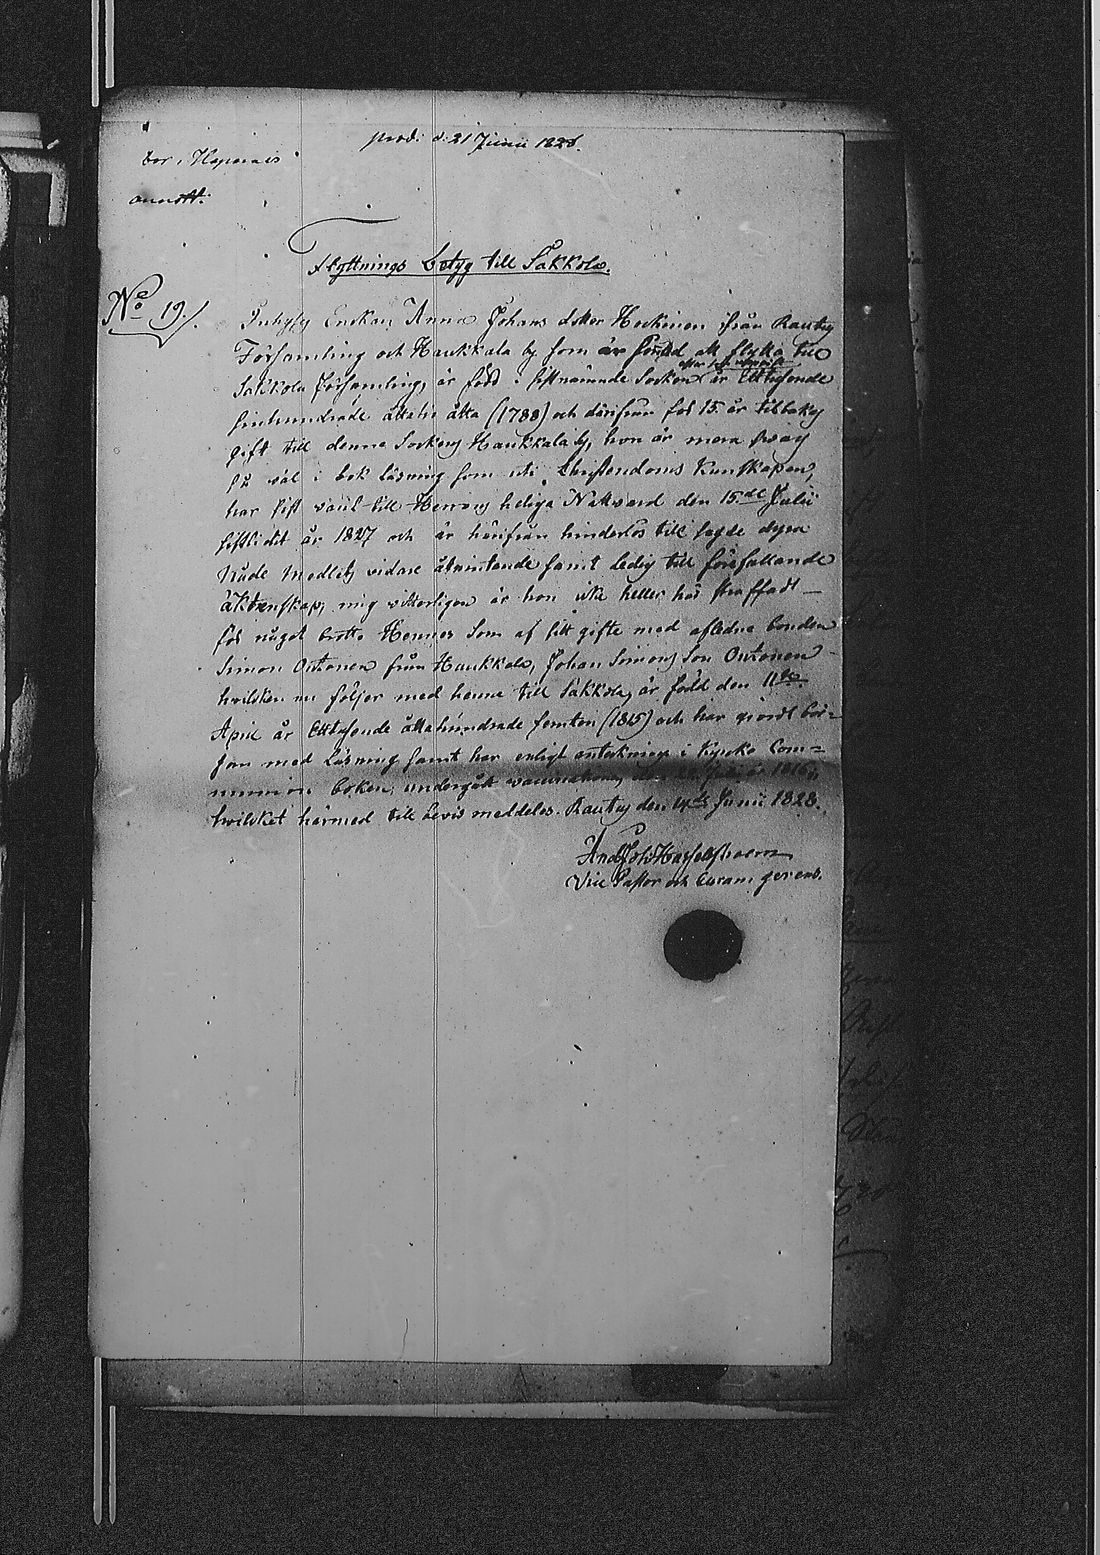 prod. d. 21 Junii 1828.
bor i Haparais
annott.
Flyttnings Betyg till Sakkola.
No 19.
Inhyses Enckan Anna Johans dotter Heckinen ifrån Rautus
Församling och Haukkala by som är sinnad att flytta till
efter sist
Sakkola församling, är född i sistnämnde Socken år Ettusende
sjuhundrade åttatio åtta (1788) och därifrån för 15 år tillbaka
gift till denna Sockens Haukkala by, hon är mera svag
så väl i bok läsning som uti Christendoms Kunskapen,
har sist varit till Herrans heliga Nattvard den 15de Julii
sistlidit år 1827 och är härifrån hinderlös till
Nåde Medlets vidare åtnjutande samt ledig till förefallande
äktenskap, mig vitterligen är hon icke heller här straffad
för något brott. Hennes Son af sitt gifte med aflidne bonden
Simon Ontonen från Haukkala, Johan Simons Son Ontonen
hvilken nu följer med henne till Sakkola, är född den 11te
April år Ettusende åttahundrade femton (1815) och har giordt bör-
jan med Läsning samt har enligt anteckning i Kyrko Com=
munion boken undergått vaccination, den 22 Julii år 1816,
hvilket härmed till bevis meddeles. Rautus den 14de Junii 1828.
And Joh Hasselblatt
Vice Pastor och Curam gerens.